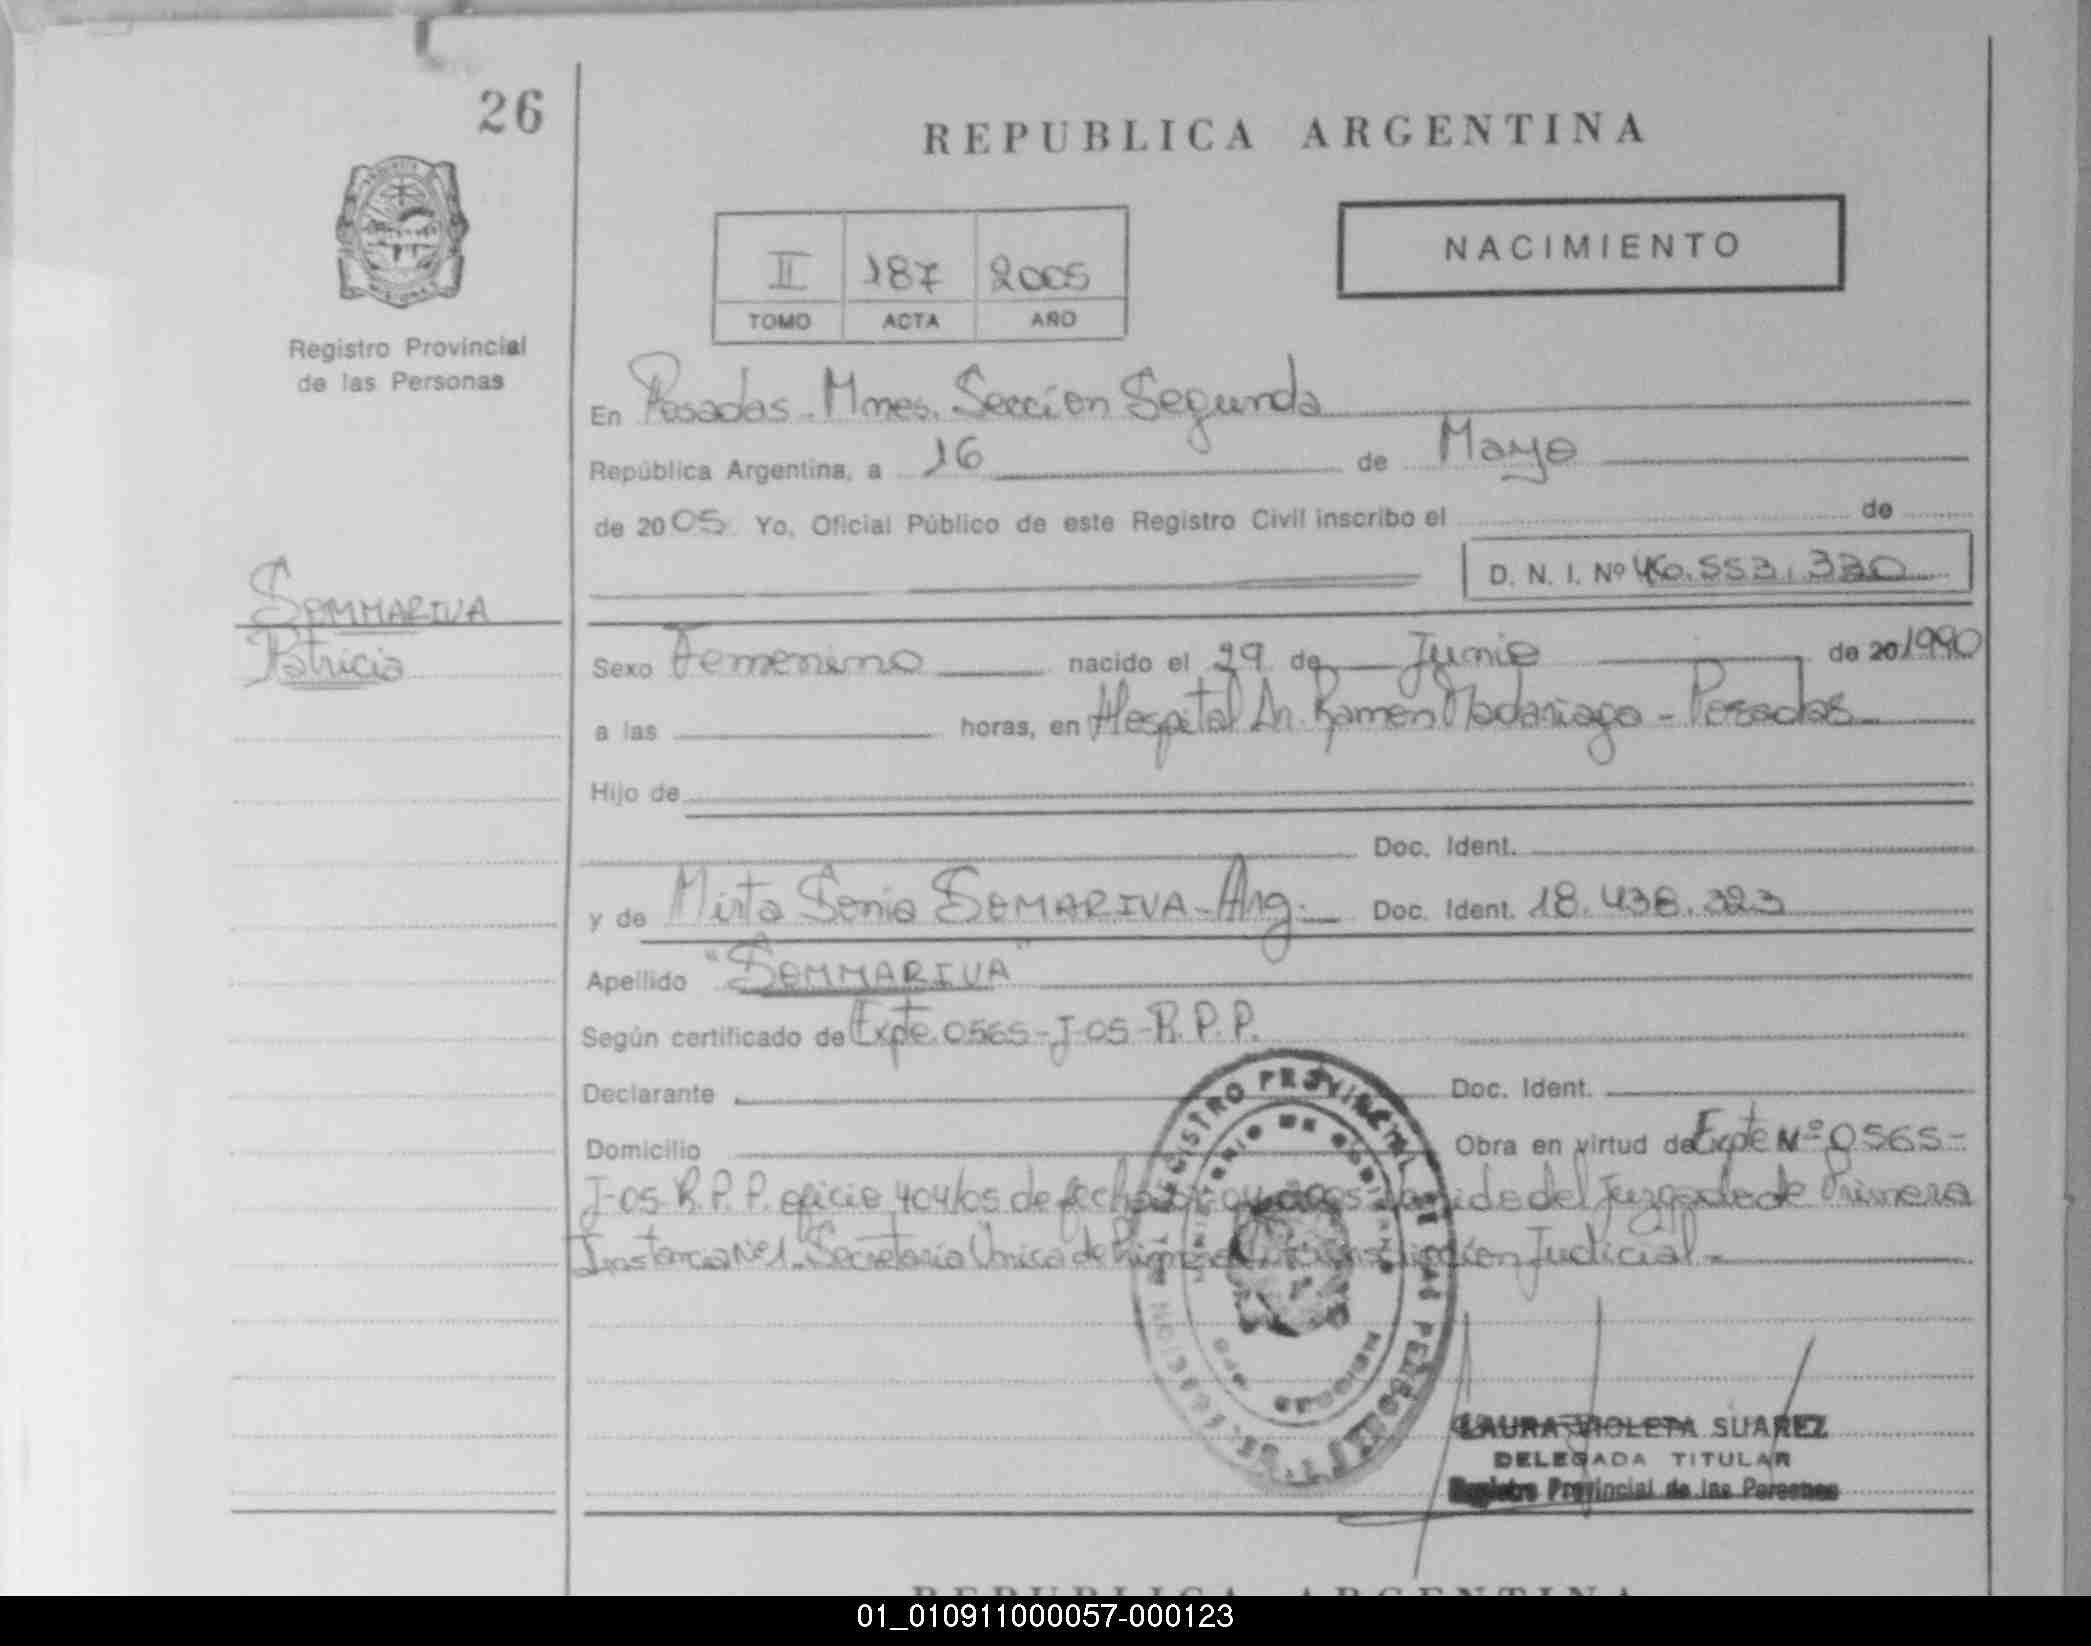 26
REPUBLICA ARGENTINA
II 187 2005
TOMO ACTA AÑO
NACIMIENTO
Registro Provincial
de las Personas
En Posadas. Mnes. Sección Segunda
República Argentina, a 16 de Mayo
de 2005 Yo, Oficial Público de este Registro Civil inscribo el de
D. N. I. Nº 46.553.330
SOMMARIVA
Patricia
Sexo Femenino nacido el 29 de Junio de 20 1990
a las horas, en Hospital Dr. Ramon Madariaga - Posadas
Hijo de
Doc. Ident.
y de Mirta Sonia SOMARIVA - Arg. Doc. Ident. 18.438.323
Apellido "SOMMARIVA"
Según certificado de Expte. 0565-J-05-R.P.P.
Declarante Doc. Ident.
Domicilio Obra en virtud de Expte Nº 0565-
J-05-R.P.P. oficio 404/05 de fecha del Juzgado de Primera
Instancia Nº1. Secretaria Unica de Primera Judicial.-
REGISTRO PROVINCIAL DE LAS PERSONAS
MINISTERIO DE GOBIERNO
MISIONES
LAURA VIOLETA SUAREZ
DELEGADA TITULAR
Registro Provincial de las Personas
REPUBLICA ARGENTINA
01_010911000057-000123